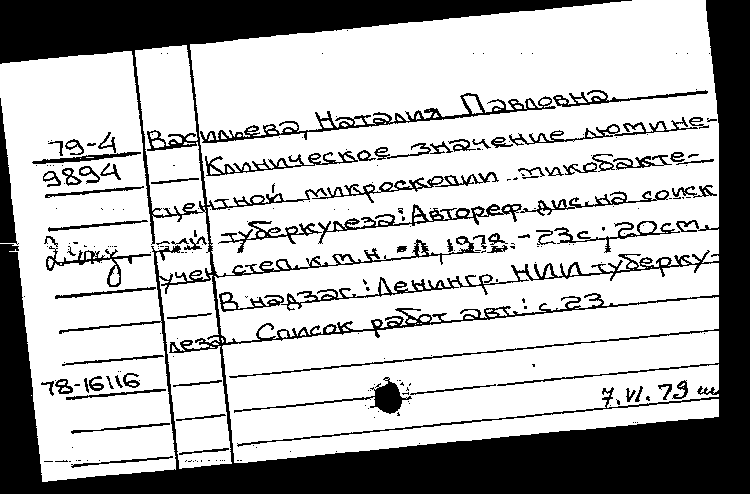 79-4 Васильева, Наталия Павловна.
9894 Клиническое значение люмине-
сцентной микроскопии микобакте-
рий туберкулеза: Автореф. дис. на соиск
2 экз. учен. степ. к. м. н. - Л., 1978. - 23 с; 20 см.
В надзаг.: Ленингр. НИИ туберку-
леза. Список работ авт.: с. 23.
78-16116
7.VI.79